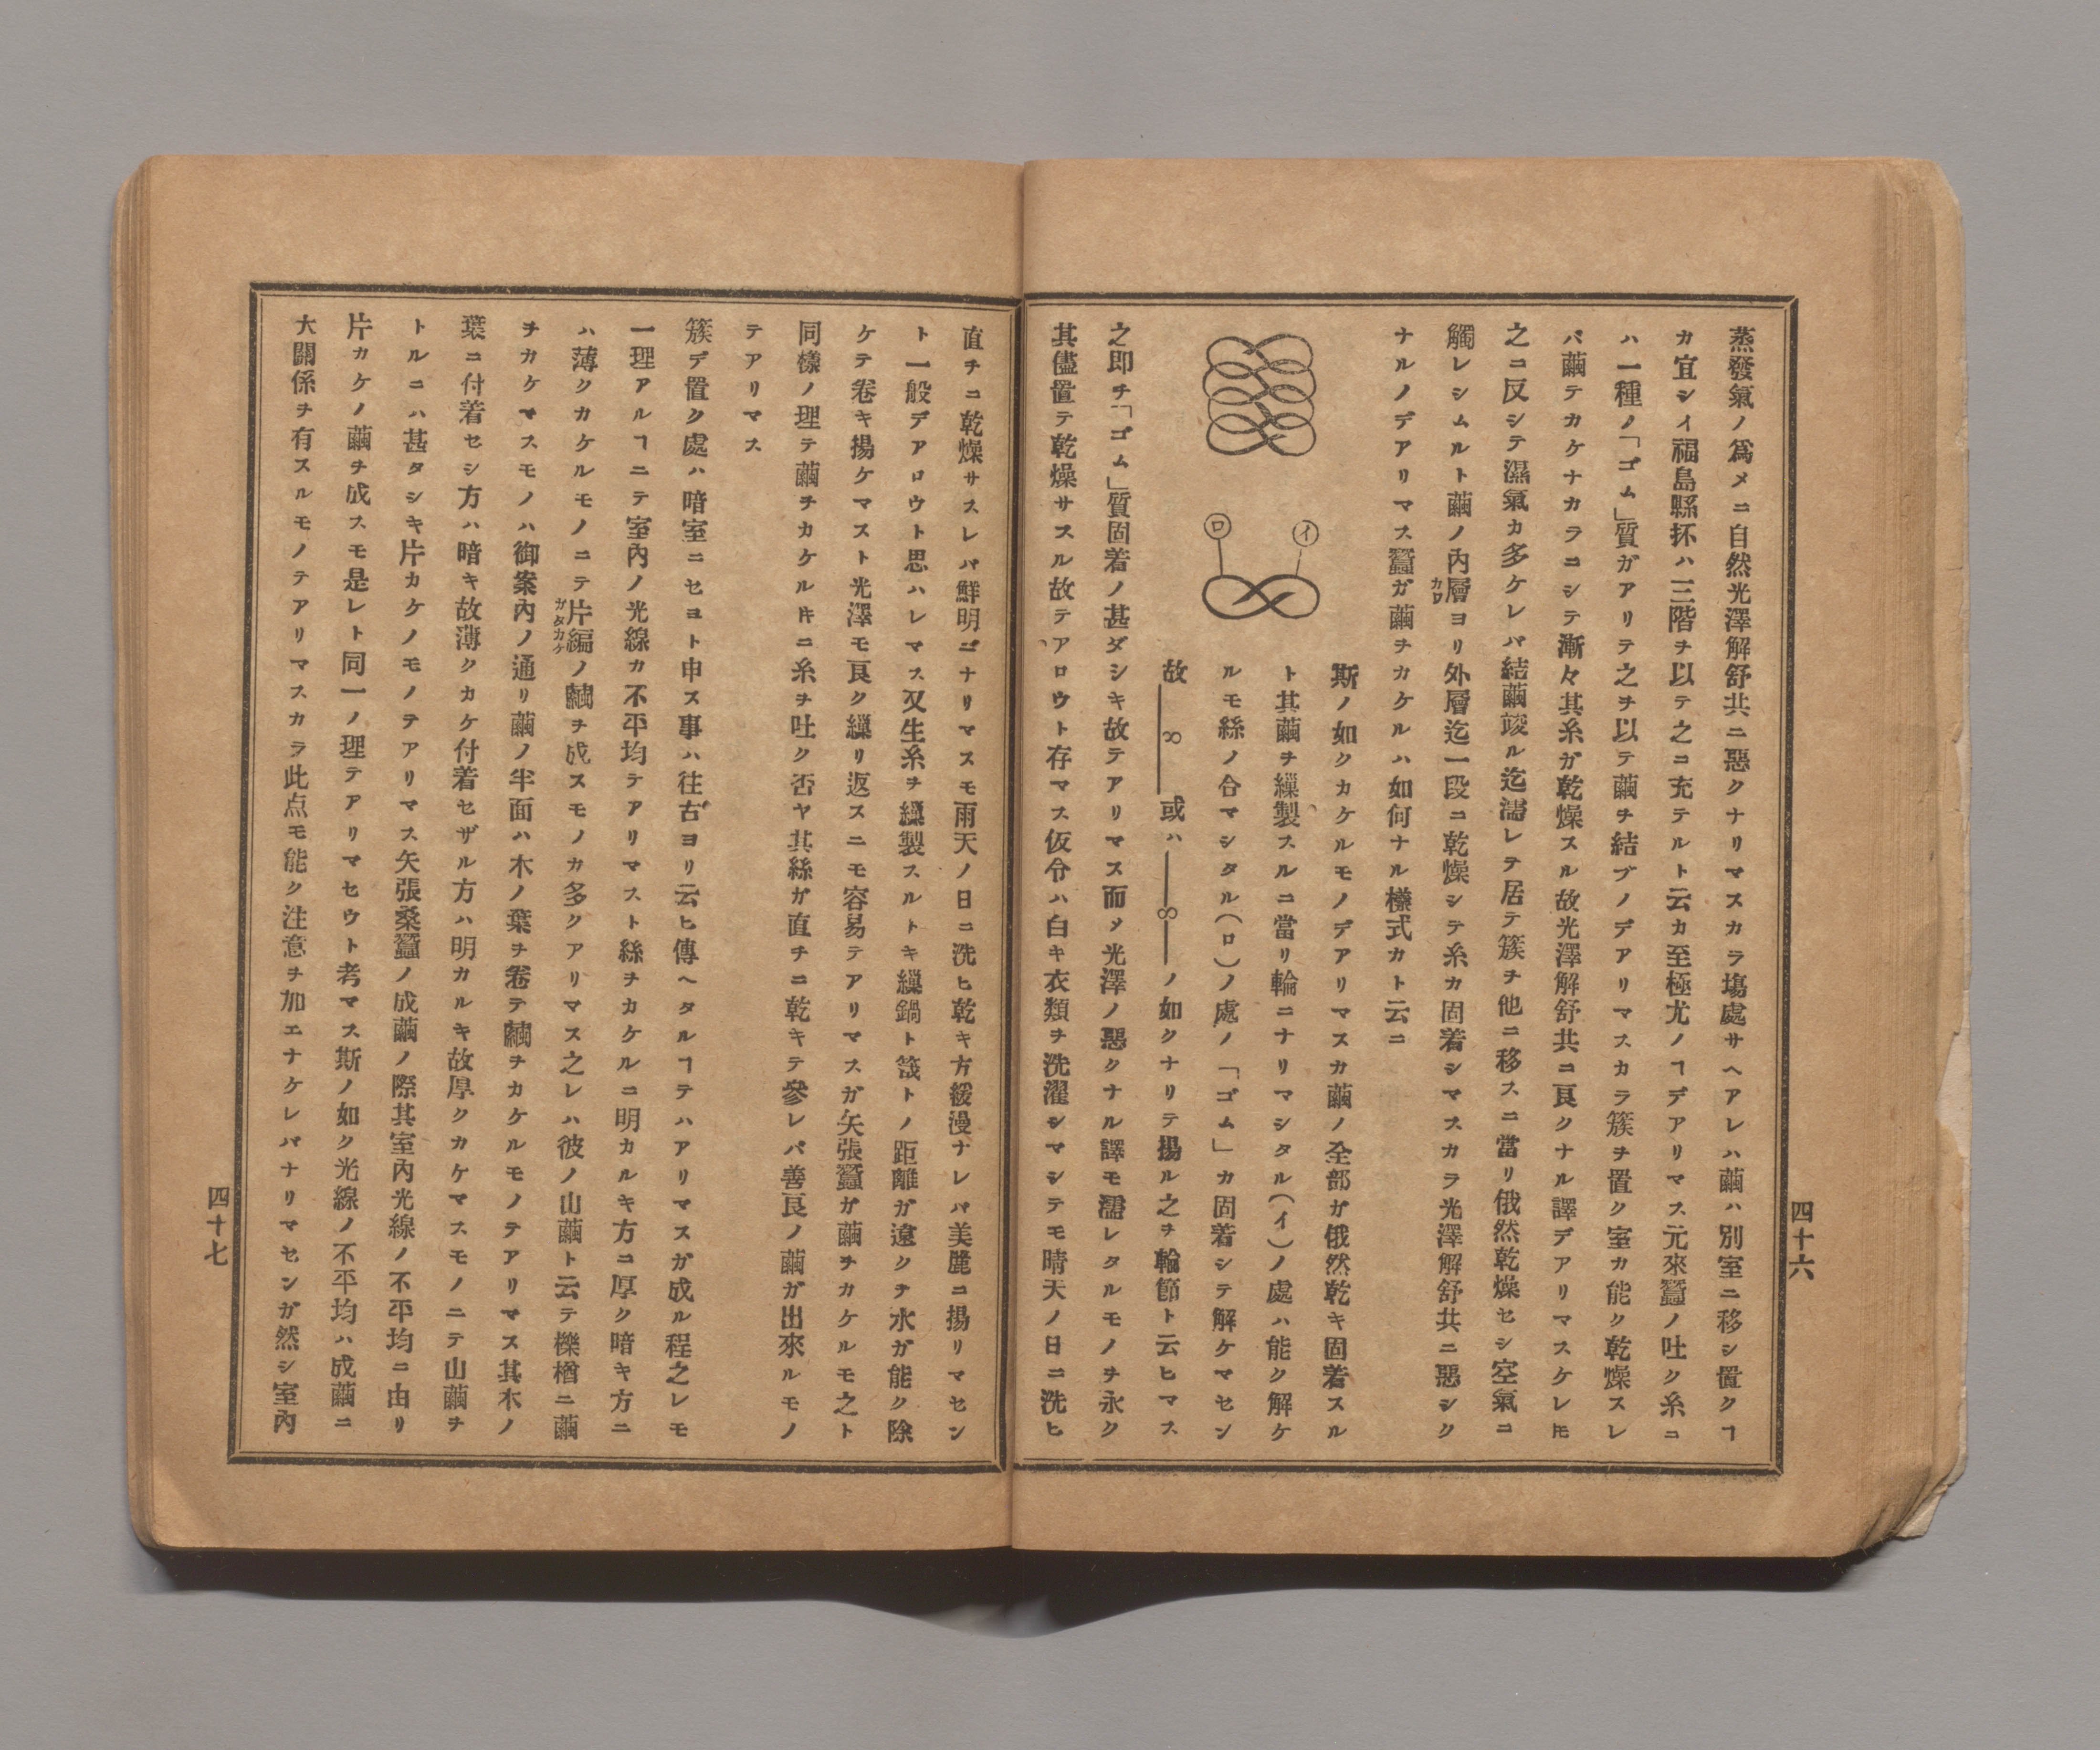 蒸發氣ノ爲メニ自然光澤解舒共ニ惡クナリマスカラ塲處サヘアレハ繭ハ別室ニ移シ置クヿ
カ宜シイ福島縣抔ハ三階ヲ以テ之ニ充テルト云カ至極尤ノヿデアリマス元來蠶ノ吐ク糸ニ
ハ一種ノ「ゴム」質ガアリテ之ヲ以テ繭ヲ結ブノデアリマスカラ簇ヲ置ク室カ能ク乾燥スレ
バ繭テカケナカラニシテ漸々其糸ガ乾燥スル故光澤解舒共ニ良クナル譯デアリマスケレ𪜈
之ニ反シテ濕氣カ多ケレバ結繭竣ル迄濡レテ居テ簇ヲ他ニ移スニ當リ俄然乾燥セシ空氣ニ
觸レシムルト繭ノ內層ヨリ外層迄一段ニ乾燥シテ糸カ固着シマスカラ光澤解舒共ニ惡シク
カロ
ナルノデアリマス蠶ガ繭ヲカケルハ如何ナル樣式カト云ニ
斯ノ如クカケルモノデアリマスカ繭ノ全部ガ俄然乾キ固着スル
ト其繭ヲ繰製スルニ當リ輪ニナリマシタル(イ)ノ處ハ能ク解ケ
ルモ絲ノ合マシタル(ロ)ノ處ノ「ゴム」カ固着シテ解ケマセン
イ
ロ
故――∞――或ハ――∞――ノ如クナリテ揚ル之ヲ輪節ト云ヒマス
之即チ「ゴム」質固着ノ甚ダシキ故テアリマス而メ光澤ノ惡クナル譯モ濡レタルモノヲ永ク
其儘置テ乾燥サスル故テアロウト存マス仮令ハ白キ衣類ヲ洗濯シマシテモ晴天ノ日ニ洗ヒ
四十六
直チニ乾燥サスレバ鮮明ニナリマスモ雨天ノ日ニ洗ヒ乾キ方緩漫ナレバ美麗ニ揚リマセン
ト一般デアロウト思ハレマス又生糸ヲ繰製スルトキ繰鍋ト筬トノ距離ガ遠クチ水ガ能ク除
ケテ卷キ揚ケマスト光澤モ良ク繰リ返スニモ容易テアリマスガ矢張蠶ガ繭ヲカケルモ之ト
同樣ノ理テ繭ヲカケル𪜈ニ糸ヲ吐ク否ヤ其絲ガ直チニ乾キテ參レバ善良ノ繭ガ出來ルモノ
テアリマス
簇デ置ク處ハ暗室ニセヨト申ス事ハ往古ヨリ云ヒ傳ヘタルヿテハアリマスガ成ル程之レモ
一理アルヿニテ室內ノ光線カ不平均テアリマスト絲ヲカケルニ明カルキ方ニ厚ク暗キ方ニ
ハ薄クカケルモノニテ片編ノ繭ヲ成スモノカ多クアリマス之レハ彼ノ山繭ト云テ櫟楢ニ繭
カタカケ
ヲカケマスモノハ御案內ノ通リ繭ノ半面ハ木ノ葉ヲ卷テ繭ヲカケルモノテアリマス其木ノ
葉ニ付着セシ方ハ暗キ故薄クカケ付着セザル方ハ明カルキ故厚クカケマスモノニテ山繭ヲ
トルニハ甚タシキ片カケノモノテアリマス矢張桑蠶ノ成繭ノ際其室內光線ノ不平均ニ由リ
片カケノ繭ヲ成スモ是レト同一ノ理テアリマセウト考マス斯ノ如ク光線ノ不平均ハ成繭ニ
大關係ヲ有スルモノテアリマスカラ此点モ能ク注意ヲ加エナケレバナリマセンガ然シ室內
四十七